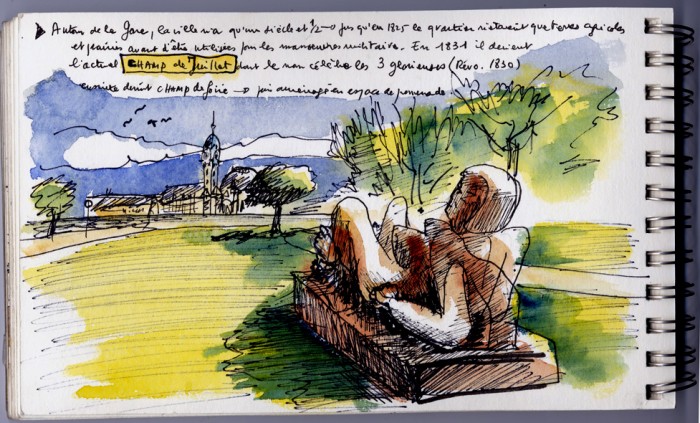 ▶ Autour de la Gare, la ville n'a qu'un siècle et 1/2 → jusqu'en 1825 le quartier n'était que terres agricoles
et prairies avant d'être utilisées pour les manoeuvres militaire. En 1831 il devient
l'actuel CHAMP de Juillet dont le nom célèbre les 3 glorieuses (Révo. 1830)
ensuite devint CHAMP de foire → puis aménagé en espace de promenade